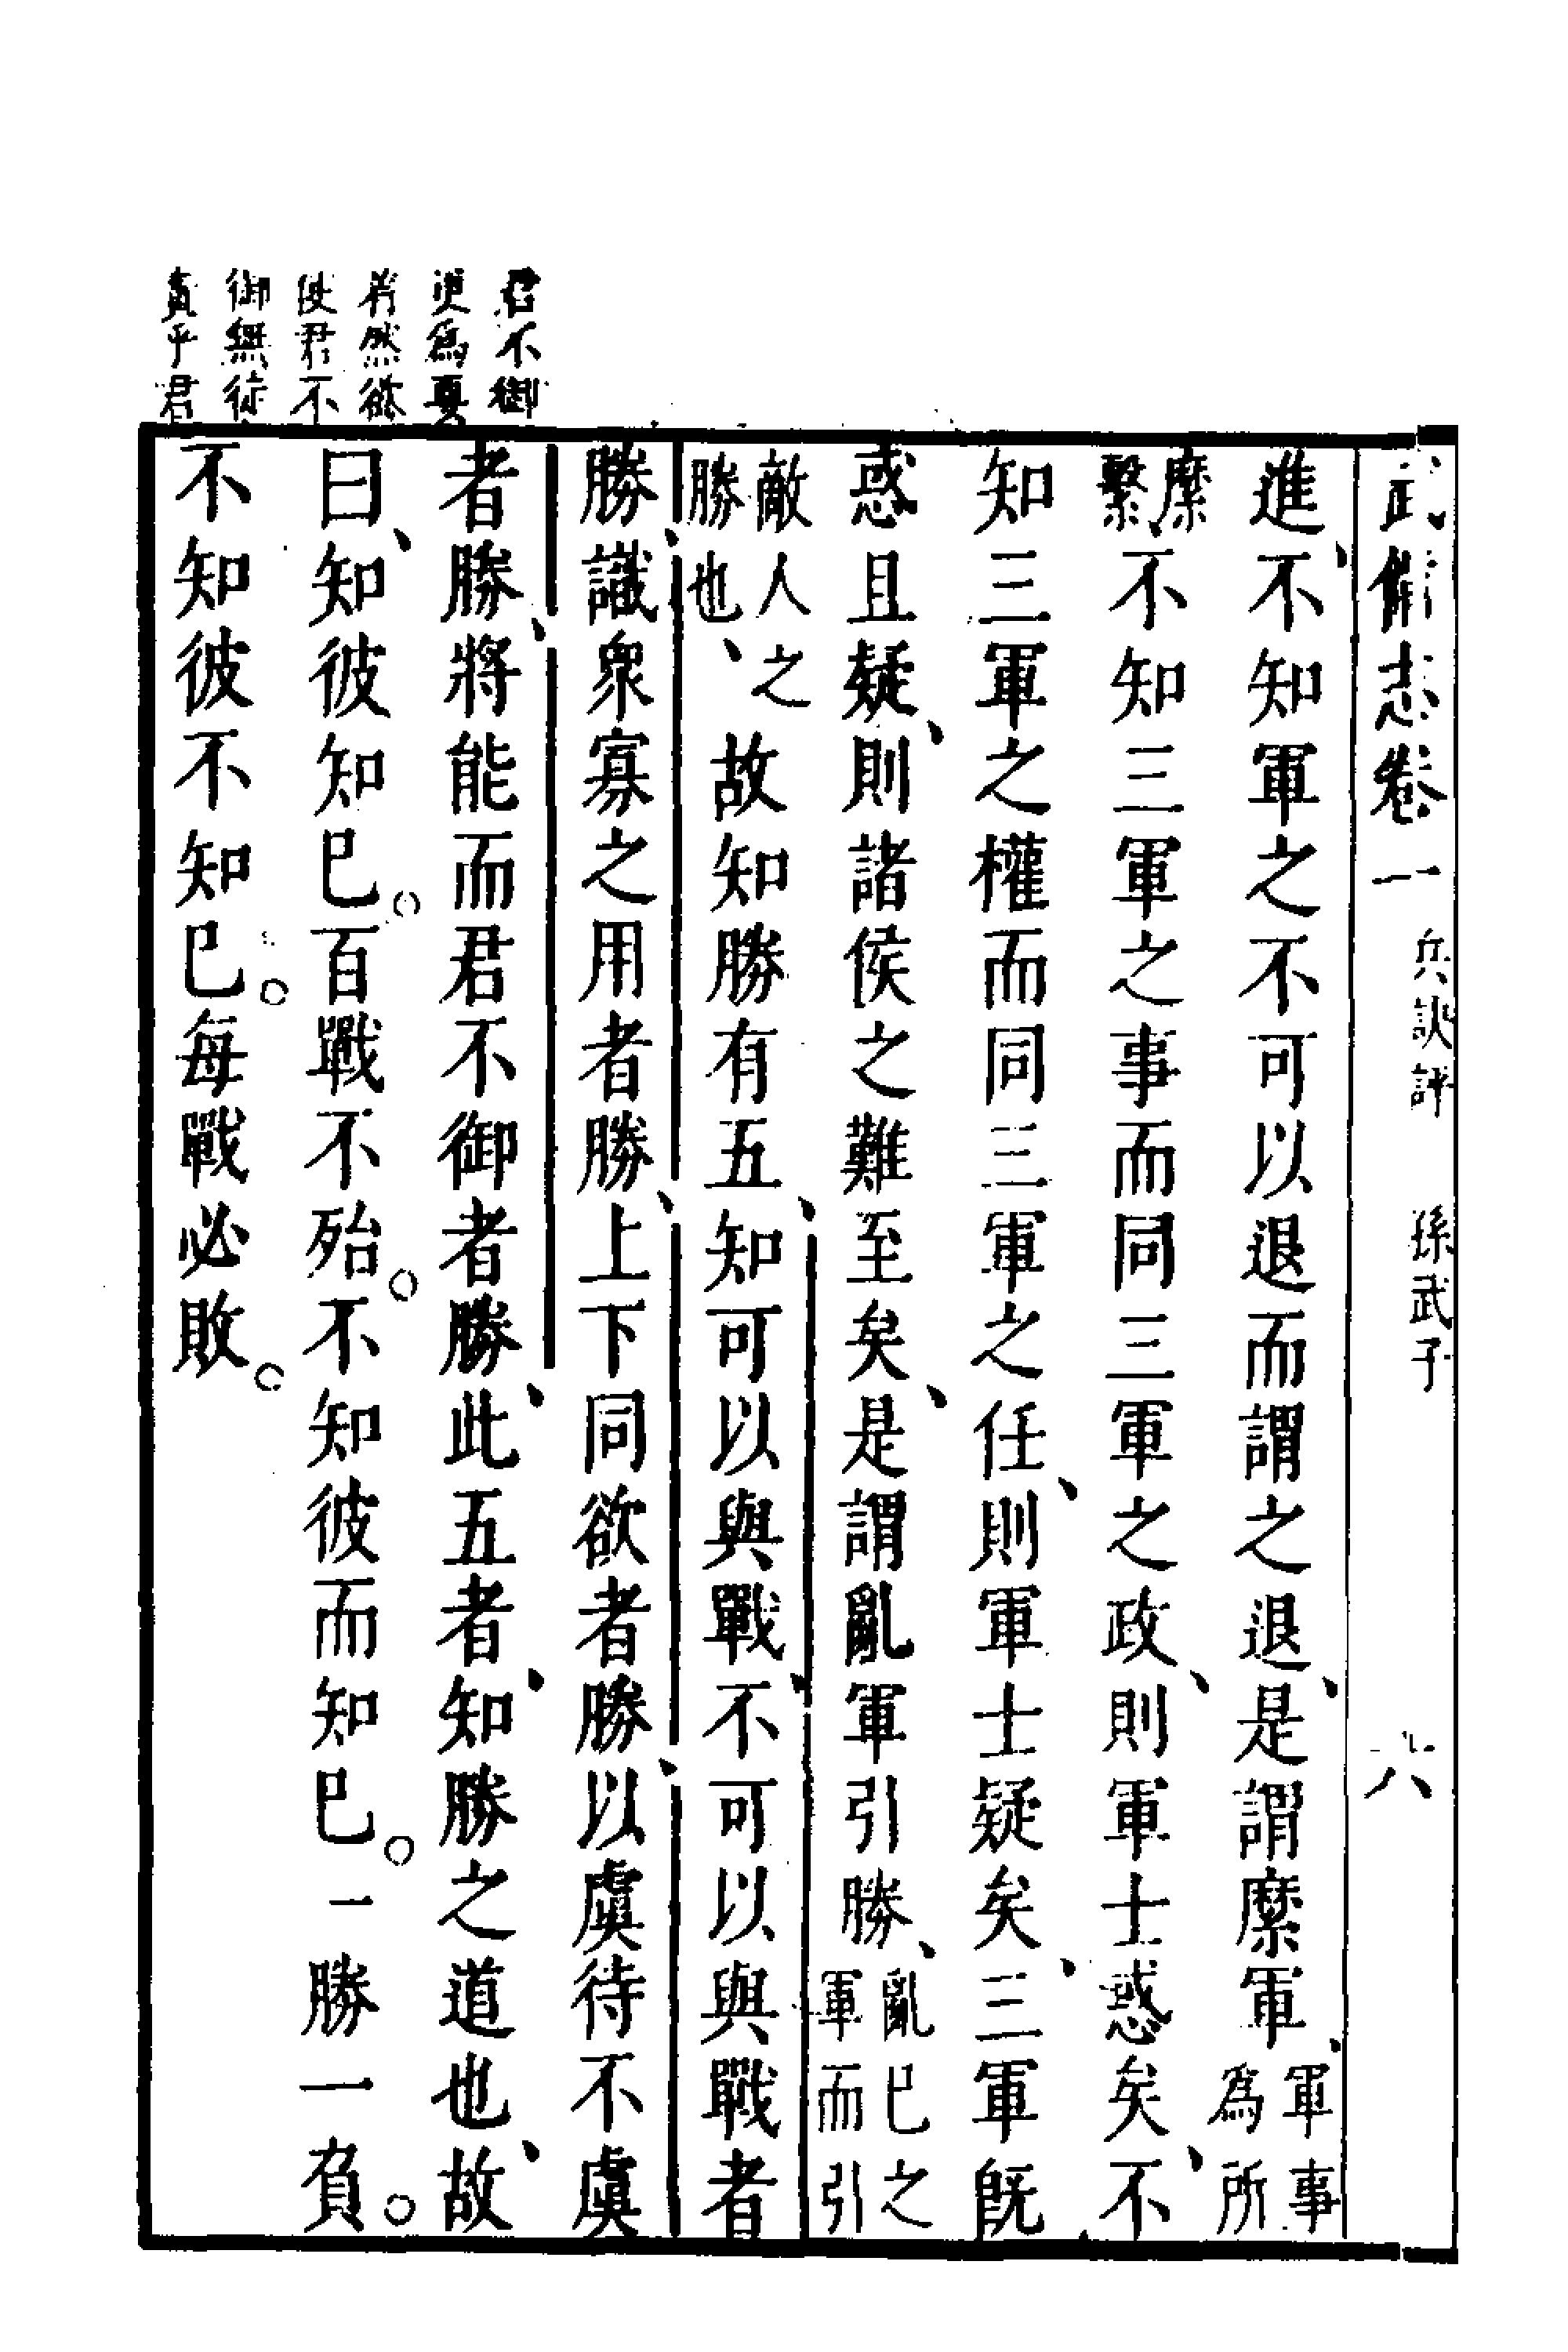 武備志卷一 兵訣評 孫武子 六
進不知軍之不可以退而謂之退是謂縻軍軍事為所
縻繫不知三軍之事而同三軍之政則軍士惑矣不
知三軍之權而同三軍之任則軍士疑矣三軍既
惑且疑則諸侯之難至矣是謂亂軍引勝亂已之軍而引
敵人之勝也故知勝有五知可以與戰不可以與戰者
勝識衆寡之用者勝上下同欲者勝以虞待不虞
者勝將能而君不御者勝此五者知勝之道也故
曰知彼知已百戰不殆不知彼而知已一勝一負
不知彼不知已每戰必敗
君不御
更為要
著然欲
使君不
御無徒
責乎君